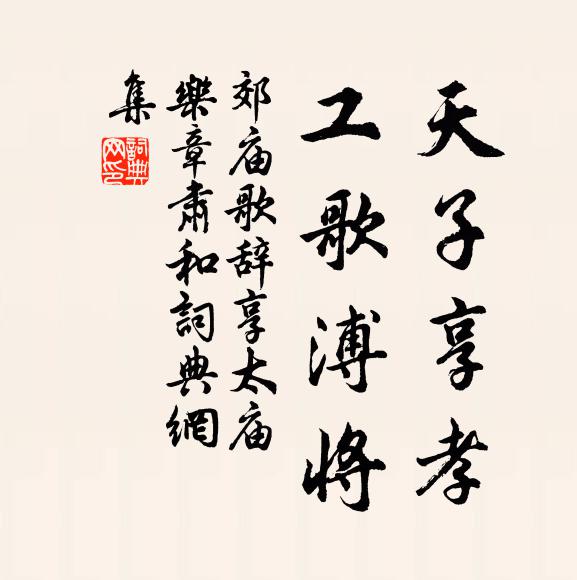 天子享孝
工歌溥將
郊庙歌辞享太庙
樂章肅和詞典網
集
詞典
网印